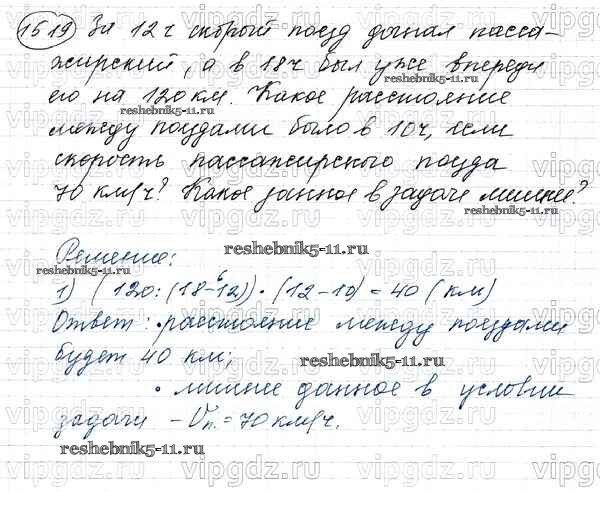 1519 За 12 ч скорый поезд догнал пасса-
жирский, а в 18 ч был уже впереди
его на 120 км. Какое расстояние
reshebnik5-11.ru
между поездами было в 10 ч, если
скорость пассажирского поезда
70 км/ч? Какое данное в задаче лишнее?
reshebnik5-11.ru
Решение:
reshebnik5-11.ru
1) (120 : (18-12)) · (12-10) = 40 (км)
Ответ: · расстояние между поездами
будет 40 км;
reshebnik5-11.ru
· лишнее данное в условии
задачи - Vп. = 70 км/ч.
reshebnik5-11.ru
vipgdz.ru